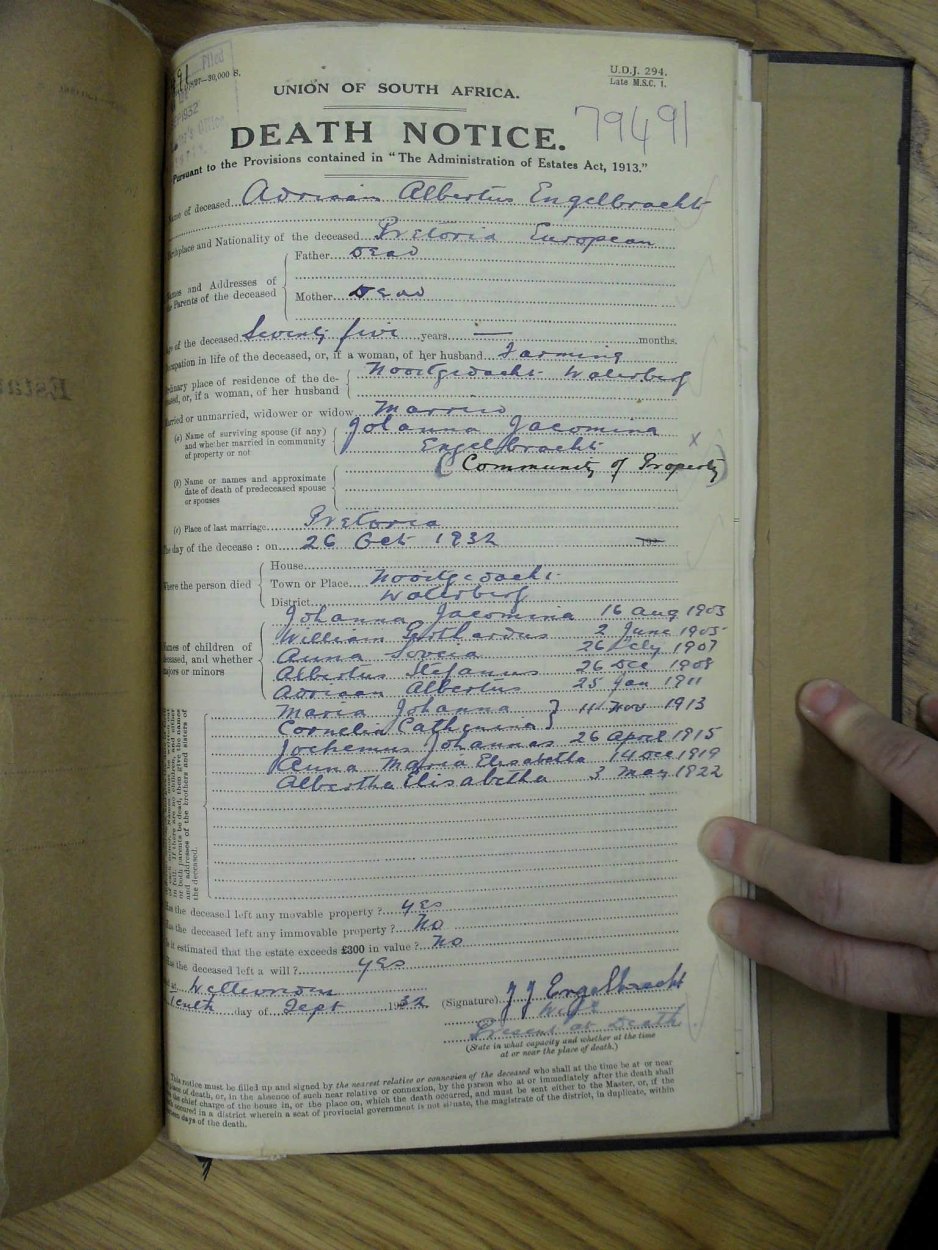 Filed
—30,000 S.
1932
U.D.J. 294.
Late M.S.C. 1.
UNION OF SOUTH AFRICA.
79491
DEATH NOTICE.
Pursuant to the Provisions contained in "The Administration of Estates Act, 1913."
Name of deceased Adriaan Albertus Engelbracht
Birthplace and Nationality of the deceased Pretoria European
Names and Addresses of the Parents of the deceased
Father Dead
Mother Dead
Age of the deceased Seventy five years — months.
Occupation in life of the deceased, or, if a woman, of her husband Farming
Ordinary place of residence of the deceased, or, if a woman, of her husband Nooitgedacht Waterberg
Married or unmarried, widower or widow Married
(a) Name of surviving spouse (if any) and whether married in community of property or not
Johanna Jacomina
Engelbracht x
(Community of Property)
(b) Name or names and approximate date of death of predeceased spouse or spouses
(c) Place of last marriage Pretoria
The day of the decease: on 26 Oct 1932 192
Where the person died
House
Town or Place Nooitgedacht
District Waterberg
Names of children of deceased, and whether majors or minors
Johanna Jacomina 16 Aug 1903
William Gothardus 2 June 1905
Anna Soveia 26 July 1907
Albertus Stefanus 26 Dec 1908
Adriaan Albertus 25 Jan 1911
Maria Johanna } 11 Nov 1913
Cornelia Catherina }
Jochemus Johannes 26 April 1915
Anna Maria Elisabetha 14 Dec 1919
Albertha Elisabetha 3 May 1922
both parents be dead, then give the names
and addresses of the brothers and sisters of
the deceased.
Has the deceased left any movable property? Yes
Has the deceased left any immovable property? No
Is it estimated that the estate exceeds £300 in value? No
Has the deceased left a will? Yes
at
tenth day of Sept 1932
(Signature) J J Engelbracht
Wife
Present at Death
(State in what capacity and whether at the time
at or near the place of death.)
This notice must be filled up and signed by the nearest relative or connexion of the deceased who shall at the time be at or near
place of death, or, in the absence of such near relative or connexion, by the person who at or immediately after the death shall
the chief charge of the house in, or the place on, which the death occurred, and must be sent either to the Master, or, if the
occurred in a district wherein a seat of provincial government is not situate, the magistrate of the district, in duplicate, within
days of the death.